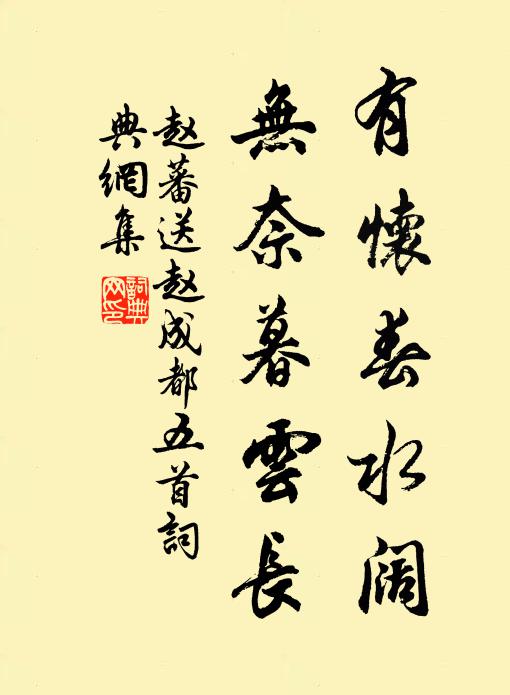 有懷春水阔
無奈暮雲長
赵蕃送赵成都五首詞
典網集
詞典網印